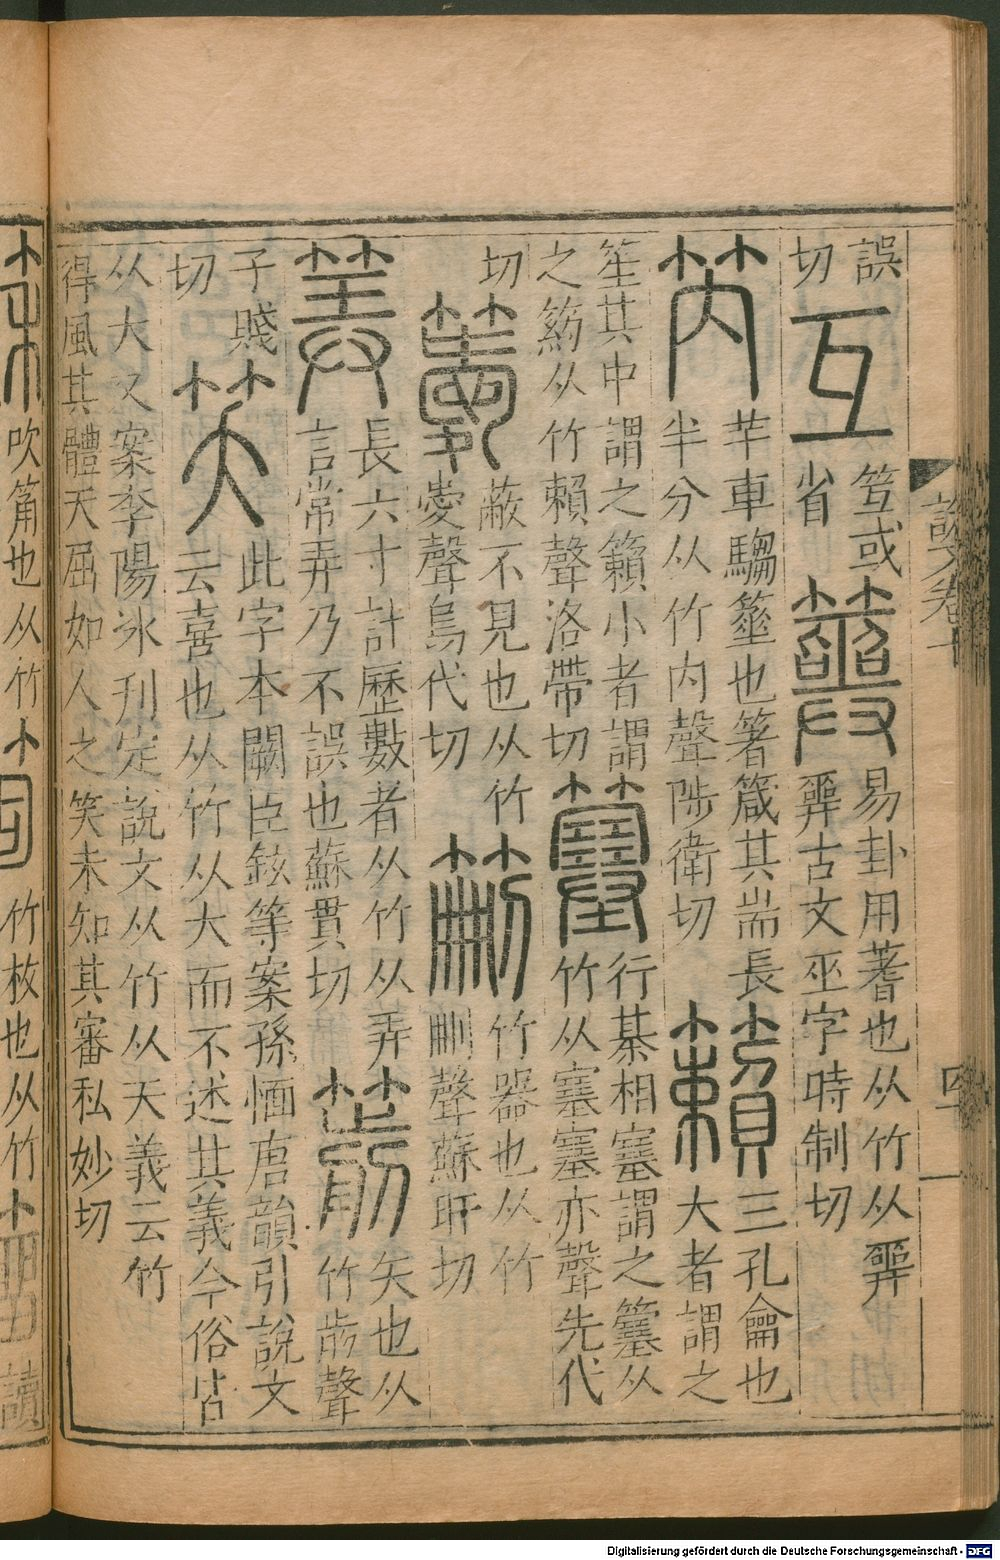 說文卷十
四
誤
切
互
或
省
簭
易卦用蓍也从竹从𢍮
𢍮古文巫字時制切
笍
羊車騶箠也箸箴其耑長
半分从竹内聲陟衛切
籟
三孔龠也
大者謂之
笙其中謂之籟小者謂
之箹从竹賴聲洛帶切
簺
行棊相塞謂之簺从
竹从塞塞亦聲先代
切
蔽不見也从竹
愛聲烏代切
竹器也从竹
刪聲蘇旰切
筭
長六寸計歷數者从竹从弄
言常弄乃不誤也蘇貫切
箭
矢也从
竹歬聲
子賤
切
笑
此字本闕臣鉉等案孫愐唐韻引說文
云喜也从竹从大而不述其義今俗皆
从大又案李陽冰刊定說文从竹从天義云竹
得風其體天屈如人之笑未知其審私妙切
吹筩也从竹
竹枚也从竹
讀
Digitalisierung gefördert durch die Deutsche Forschungsgemeinschaft - DFG